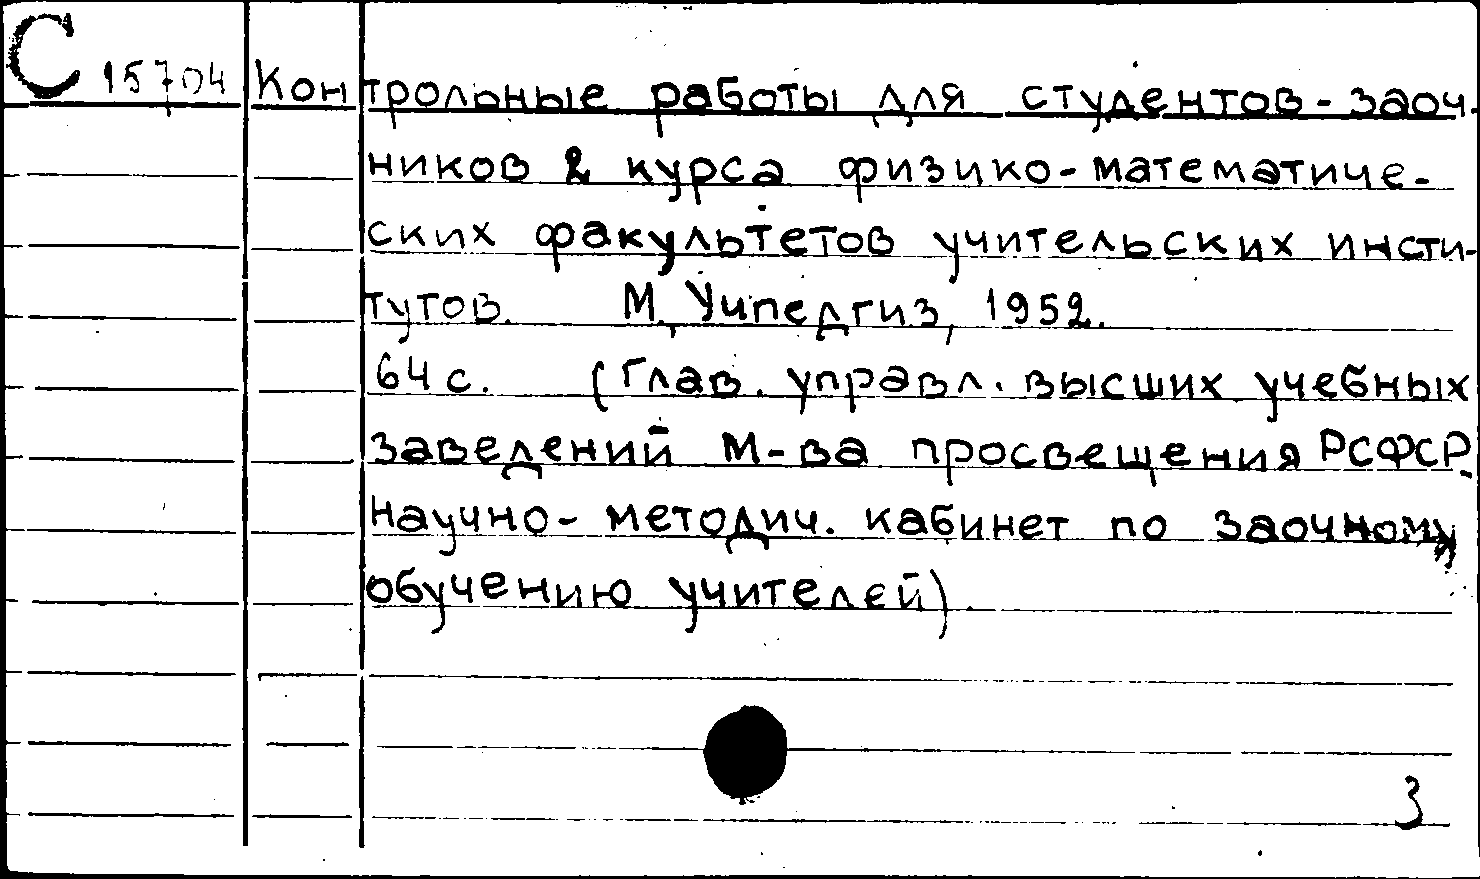 С 15704 Контрольные работы для студентов-заоч-
ников 2 курса физико-математиче-
ских факультетов учительских инсти-
тутов. М., Учпедгиз, 1952.
64 с. (Глав. управл. высших учебных
заведений М-ва просвещения РСФСР.
научно-методич. кабинет по заочному
обучению учителей).
3